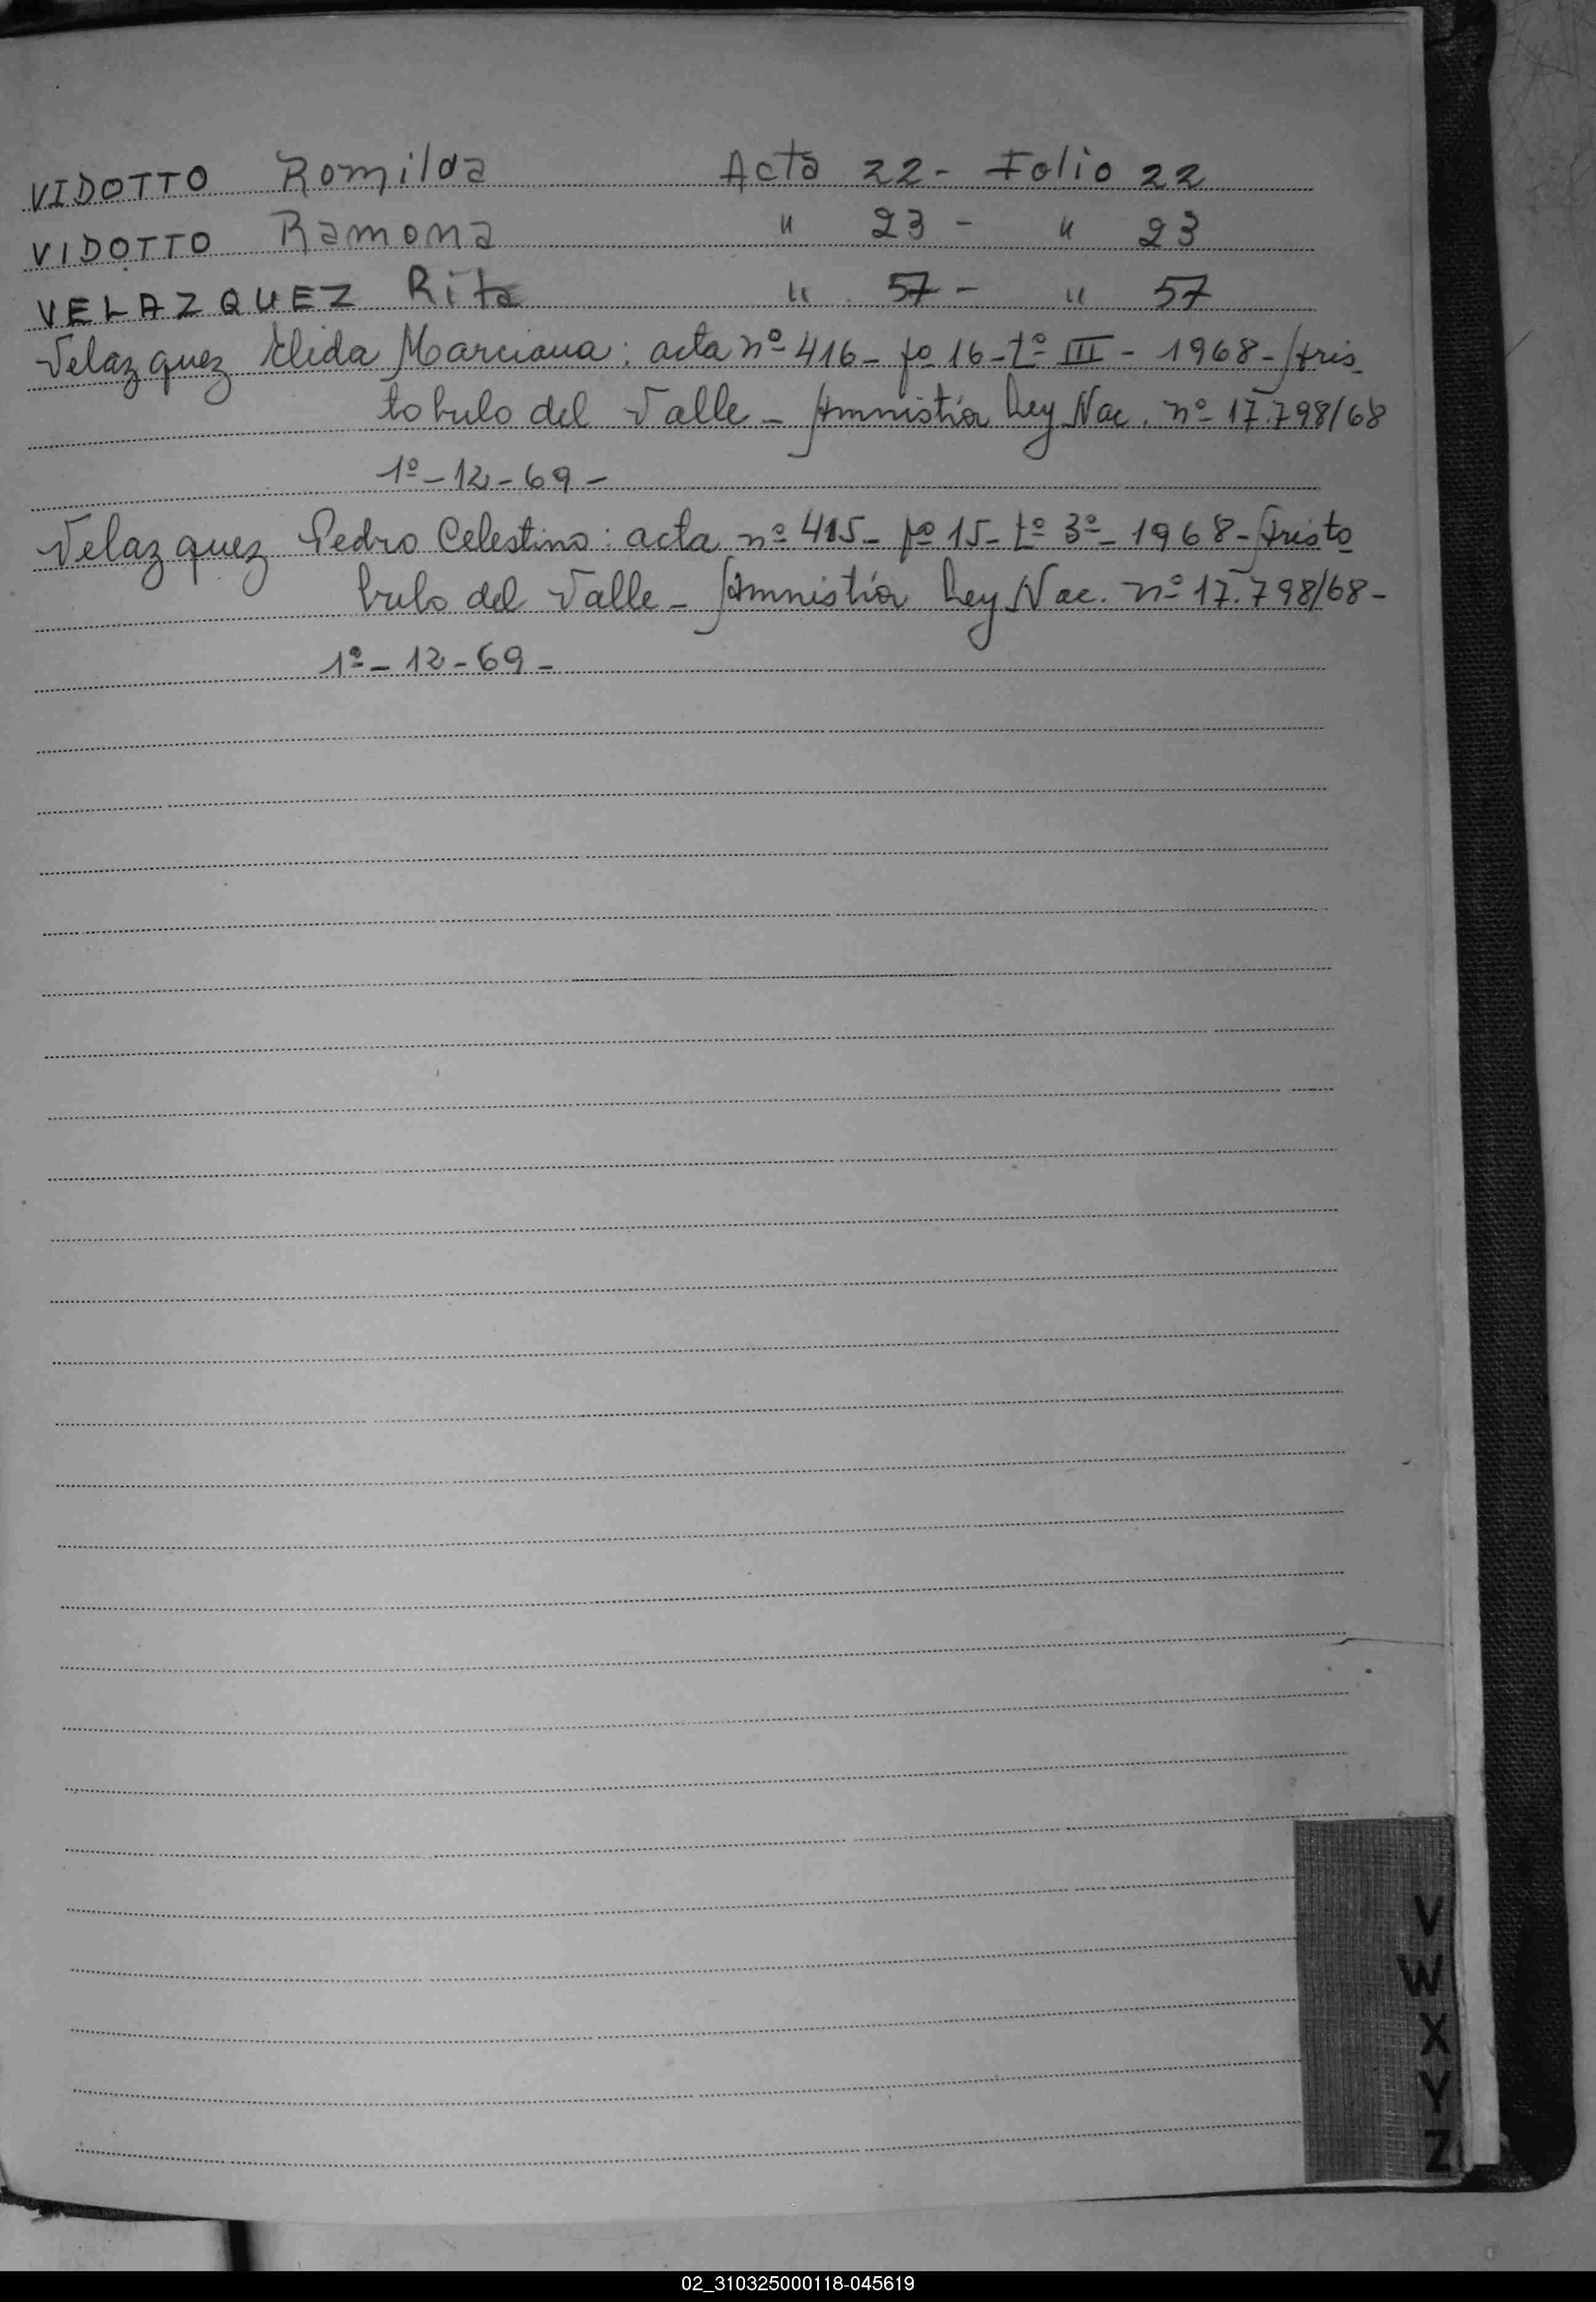 VIDOTTO Romilda Acta 22 - Folio 22
VIDOTTO Ramona " 23 - " 23
VELAZQUEZ Rita " 57 - " 57
Velazquez Elida Marciana: acta nº 416 - fº 16 - tº III - 1968 - Aris
tobulo del Valle - Amnistía Ley Nac. nº 17.798/68
1º - 12 - 69 -
Velazquez Pedro Celestino: acta nº 415 - fº 15 - tº 3º - 1968 - Aristo
bulo del Valle - Amnistía Ley Nac. nº 17.798/68 -
1º - 12 - 69 -
V
W
X
Y
Z
02_310325000118-045619